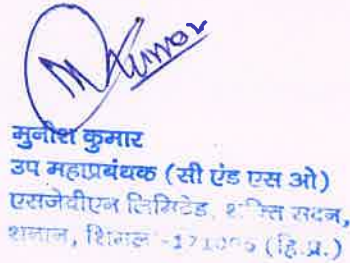 M Kumar
मुनीश कुमार
उप महाप्रबंधक (सी एंड एस ओ)
एसजेवीएन लिमिटेड, शक्ति सदन,
शनान, शिमला -171006 (हि.प्र.)